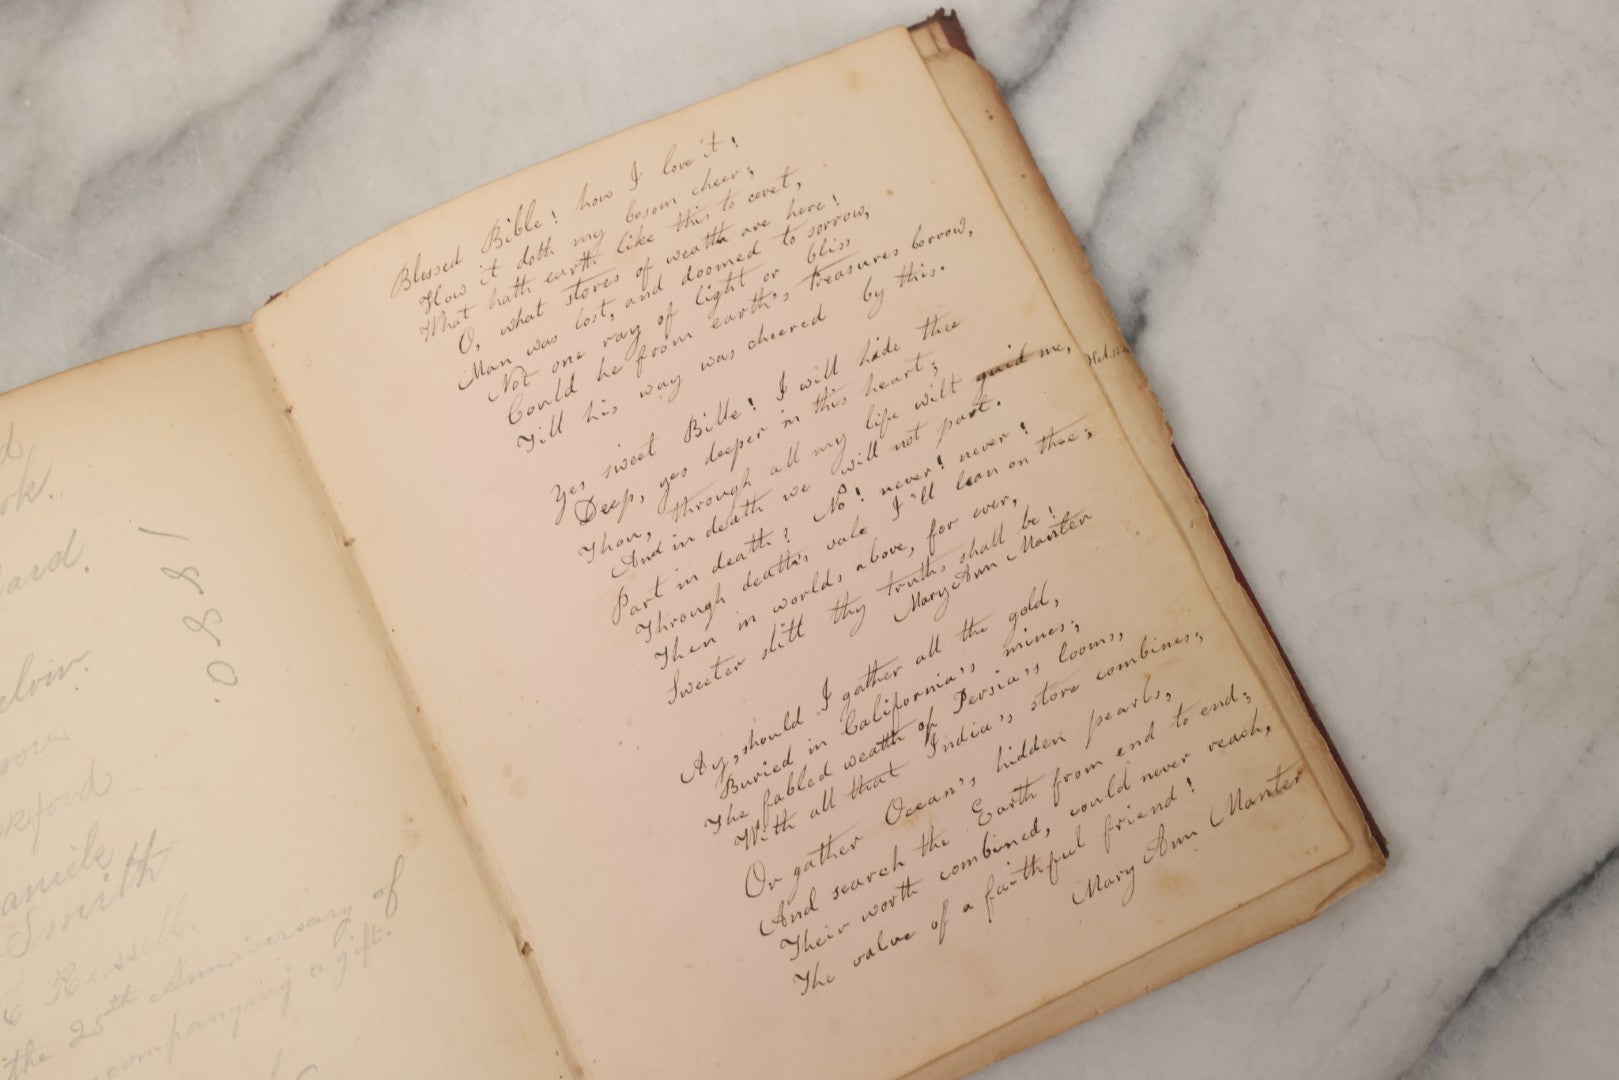 ok.
ard.
Smith
Russell.
the 25th Anniversary of
companying a gift.
1880.
Blessed Bible! how I love it!
How it doth my bosom cheer;
What hath earth like this to covet,
O, what stores of wealth are here!
Man was lost, and doomed to sorrow,
Not one ray of light or bliss
Could he from earth's treasures borrow,
Till his way was cheered by this.
Yes sweet Bible! I will hide thee
Deep, yes deeper in this heart;
Thou, through all my life wilt guid me,
And in death we will not part.
Part in death? No! never! never!
Through death's vale I'll lean on thee;
Then in worlds above, for ever,
Sweeter still thy truths shall be!
Mary Ann Manter
Ay, should I gather all the gold,
Buried in California's mines;
The fabled wealth of Persia's looms,
With all that India's store combines;
Or gather Ocean's hidden pearls,
And search the Earth from end to end;
Their worth combined, could never reach,
The value of a faithful friend!
Mary Ann Manter